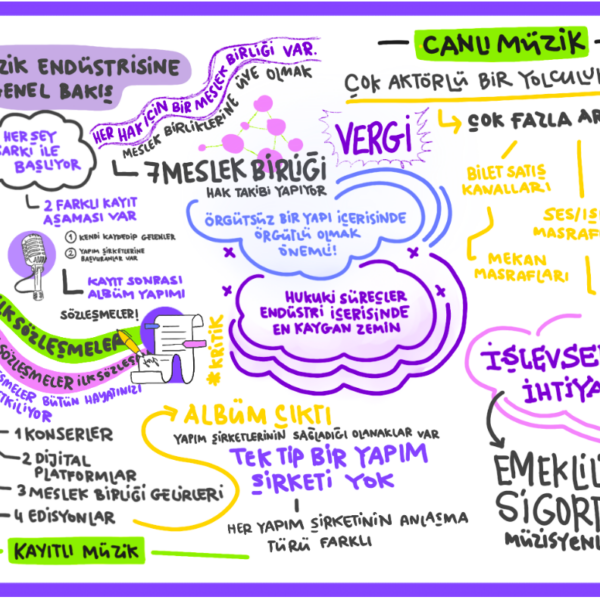 ZİK ENDÜSTRİSİNE
GENEL BAKIŞ
HER ŞEY
ŞARKI İLE
BAŞLIYOR
2 FARKLI KAYIT
AŞAMASI VAR
1 KENDİ KAYDEDİP GELENLER
2 YAPIM ŞİRKETLERİNE
BAŞVURANLAR VAR
KAYIT SONRASI
ALBÜM YAPIMI
SÖZLEŞMELER!
İLK SÖZLEŞMELER
SÖZLEŞMELER İLK SÖZLEŞ
SÖZLEŞMELER BÜTÜN HAYATINIZI
ETKİLİYOR
*KRİTİK
1 KONSERLER
2 DİJİTAL
PLATFORMLAR
3 MESLEK BİRLİĞİ GELİRLERİ
4 EDİSYONLAR
KAYITLI MÜZİK
HER HAK İÇİN BİR MESLEK BİRLİĞİ VAR.
MESLEK BİRLİKLERİNE ÜYE OLMAK
7 MESLEK BİRLİĞİ
HAK TAKİBİ YAPIYOR
VERGİ
ÖRGÜTSÜZ BİR YAPI İÇERİSİNDE
ÖRGÜTLÜ OLMAK
ÖNEMLİ!
HUKUKİ SÜREÇLER
ENDÜSTRİ İÇERİSİNDE
EN KAYGAN ZEMİN
ALBÜM ÇIKTI
YAPIM ŞİRKETLERİNİN SAĞLADIĞI OLANAKLAR VAR
TEK TİP BİR YAPIM
ŞİRKETİ YOK
HER YAPIM ŞİRKETİNİN ANLAŞMA
TÜRÜ FARKLI
CANLI MÜZİK
ÇOK AKTÖRLÜ BİR YOLCULU
ÇOK FAZLA AR
BİLET SATIŞ
KANALLARI
MEKAN
MASRAFLARI
SES/IŞ
MASRAF
İŞLEVSE
İHTİYA
EMEKLİLİ
SİGORT
MÜZİSYENL